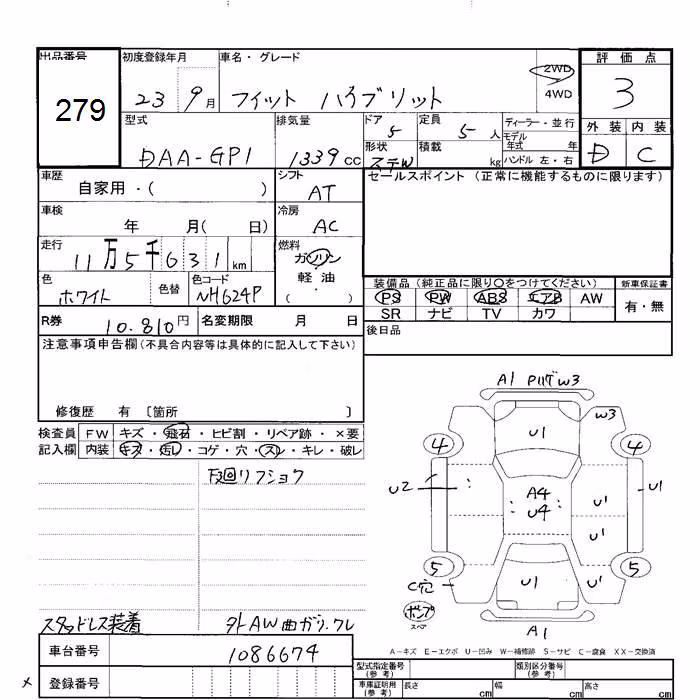 出品番号 初度登録年月 車名・グレード 評価点
279 23 9月 フィット ハイブリット 2WD 4WD 3
型式 排気量 ドア 5 定員 5人 ディーラー・並行 外装 内装
DAA-GP1 1339cc 形状 ステW 積載 kg モデル年式 年 ハンドル 左・右 D C
車歴 自家用・( ) シフト AT セールスポイント (正常に機能するものに限ります)
車検 年 月( 日) 冷房 AC
走行 11万5千631km 燃料 ガソリン 軽油 ・( )
色 ホワイト 色替 色コード NH624P 装備品(純正品に限り○をつけてください) 新車保証書
PS PW ABS エアB AW 有・無
SR ナビ TV カワ
R券 10.810円 名変期限 月 日 後日品
注意事項申告欄(不具合内容等は具体的に記入して下さい)
修復歴 有 〔箇所 〕
検査員 FW キズ・飛石・ヒビ割・リペア跡・×要
記入欄 内装 キズ・汚レ・コゲ・穴・スレ・キレ・破レ
下廻リフショク
スタッドレス装着 外AW曲ガリ.ワレ
A1 Pハゲ W3
W3
U1
4 4
U2 A4 U4 U1 U1
U1
5 5
C穴 U1 U1
ポンプ
スペア
A1
A－キズ E－エクボ U－凹み W－補修跡 S－サビ C－腐食 XX－交換済
車台番号 1086674 型式指定番号(参考) 類別区分番号(参考)
× 登録番号 車庫証明用(参考) 長さ cm 幅 cm 高さ cm